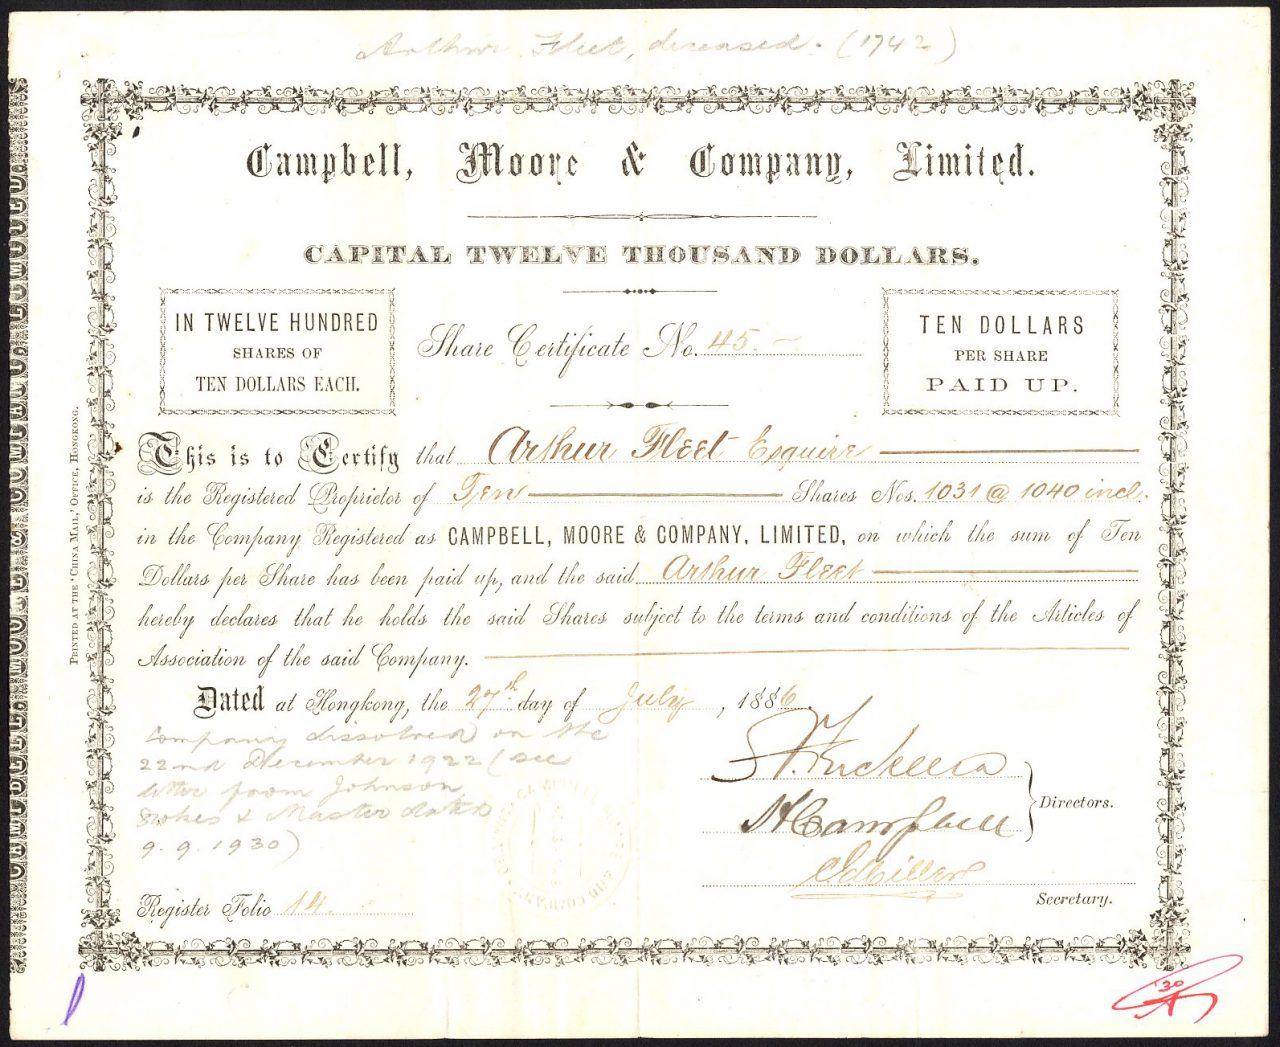 Arthur Fleet, deceased. (1742)
Campbell, Moore & Company, Limited.
CAPITAL TWELVE THOUSAND DOLLARS.
IN TWELVE HUNDRED
SHARES OF
TEN DOLLARS EACH.
Share Certificate No. 45.
TEN DOLLARS
PER SHARE
PAID UP.
This is to Certify that Arthur Fleet Esquire
is the Registered Proprietor of Ten Shares Nos. 1031 @ 1040 incl.
in the Company Registered as CAMPBELL, MOORE & COMPANY, LIMITED, on which the sum of Ten
Dollars per Share has been paid up, and the said Arthur Fleet
hereby declares that he holds the said Shares subject to the terms and conditions of the Articles of
Association of the said Company.
Dated at Hongkong, the 27th day of July, 1886.
Company dissolved on the
22nd December 1922 (see
letter from Johnson,
Stokes & Master dated
9.9.1930)
Directors.
Secretary.
Register Folio 14.
PRINTED AT THE 'CHINA MAIL,' OFFICE, HONGKONG.
CAMPBELL, MOORE & COMPANY, LIMITED
'30